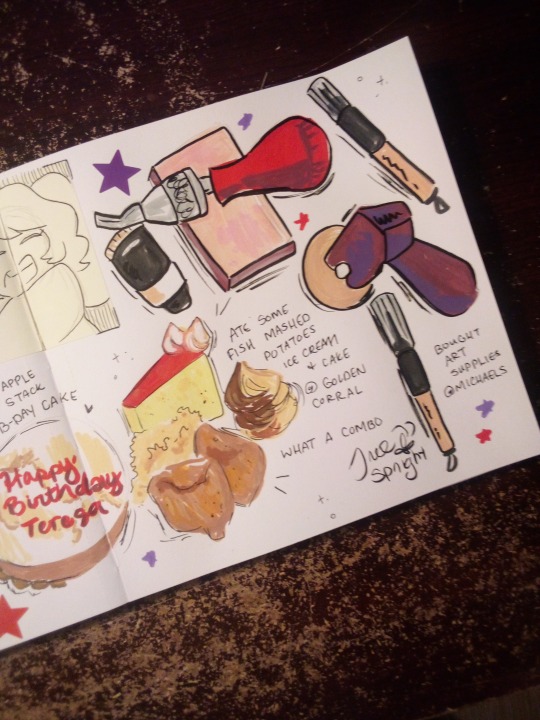 APPLE
STACK
B-DAY CAKE
Happy
Birthday
Teresa
ATE SOME
FISH MASHED
POTATOES
ICE CREAM
+ CAKE
@ GOLDEN
CORRAL
WHAT A COMBO
Spright
BOUGHT
ART
SUPPLIES
@MICHAELS